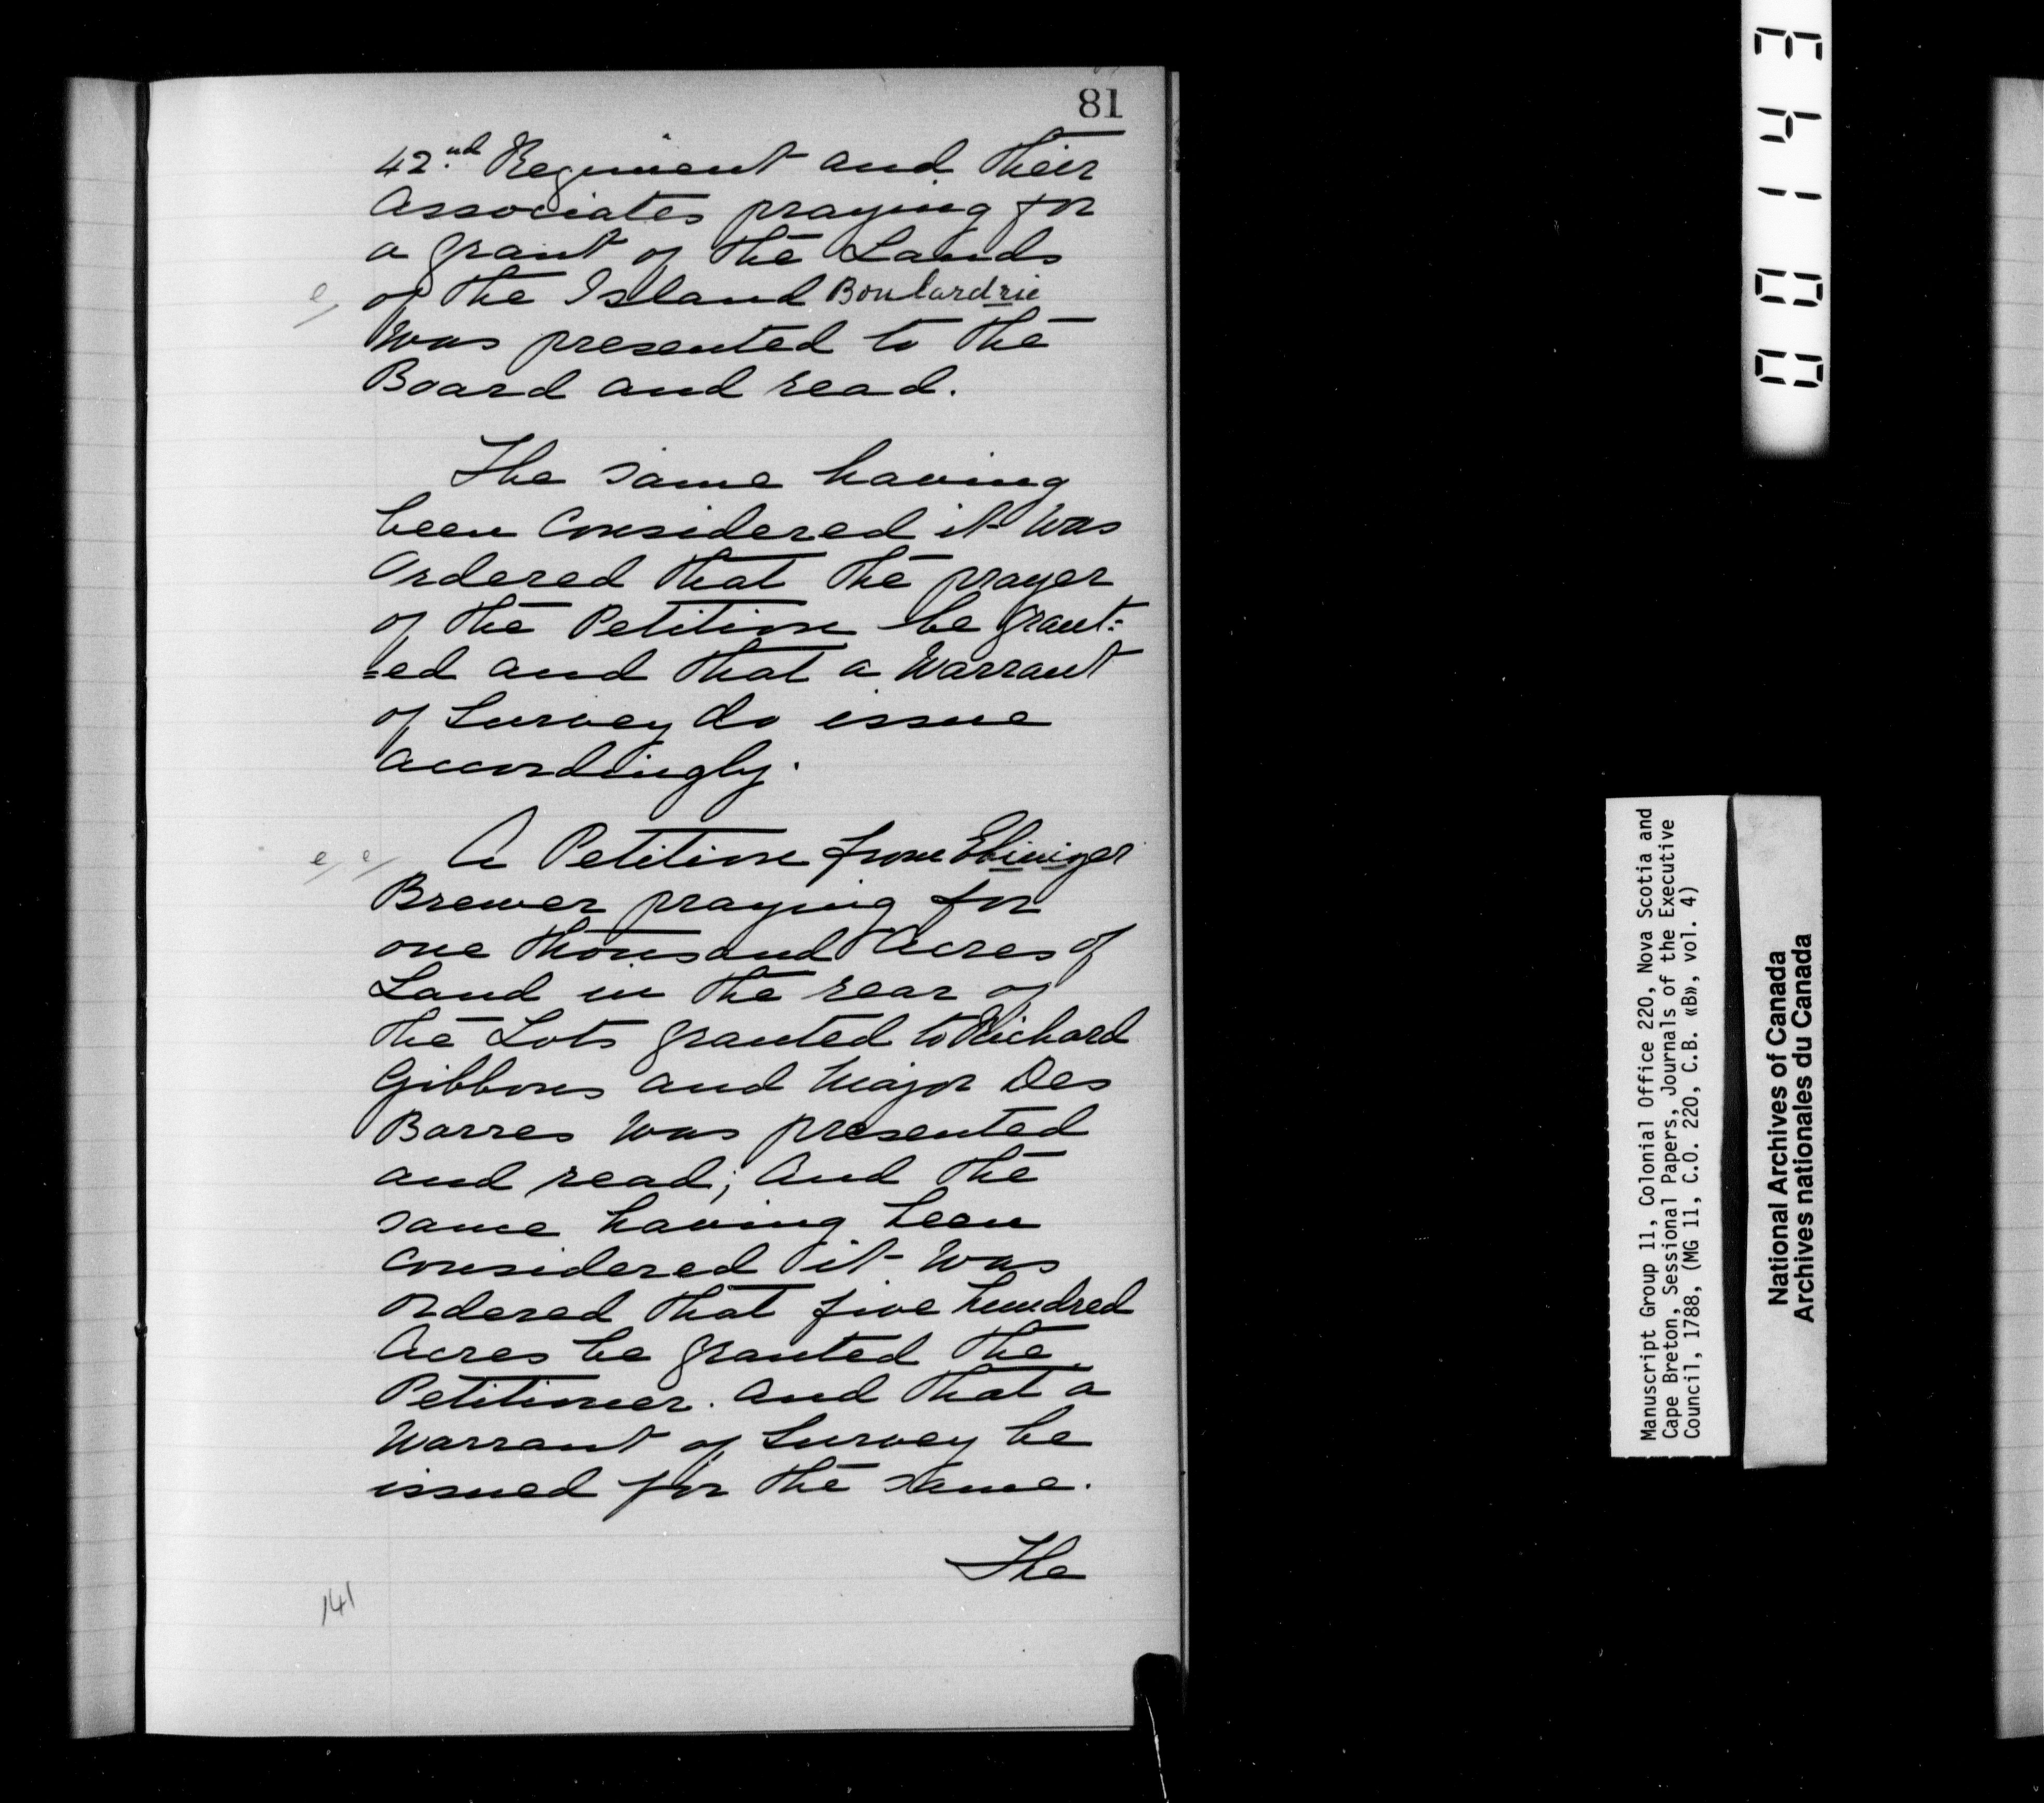 81
42.nd Regiment and their
Associates praying for
a grant of the Lands
e/ of the Island Boulardrie
Was presented to the
Board and read.
The same having
been Considered it Was
Ordered that the prayer
of the Petition be grant=
=ed and that a Warrant
of Survey do issue
accordingly.
e/ e/ A Petition from Ebiniger
Brewer praying for
one thousand Acres of
Land in the rear of
the Lots granted to Richard
Gibbons and Major Des
Barres was presented
and read; And the
same having been
Considered it Was
Ordered that five hundred
Acres be granted the
Petitioner. And that a
Warrant of Survey be
issued for the same.
The
141
00143
Manuscript Group 11, Colonial Office 220, Nova Scotia and
Cape Breton, Sessional Papers, Journals of the Executive
Council, 1788, (MG 11, C.O. 220, C.B. «B», vol. 4)
National Archives of Canada
Archives nationales du Canada